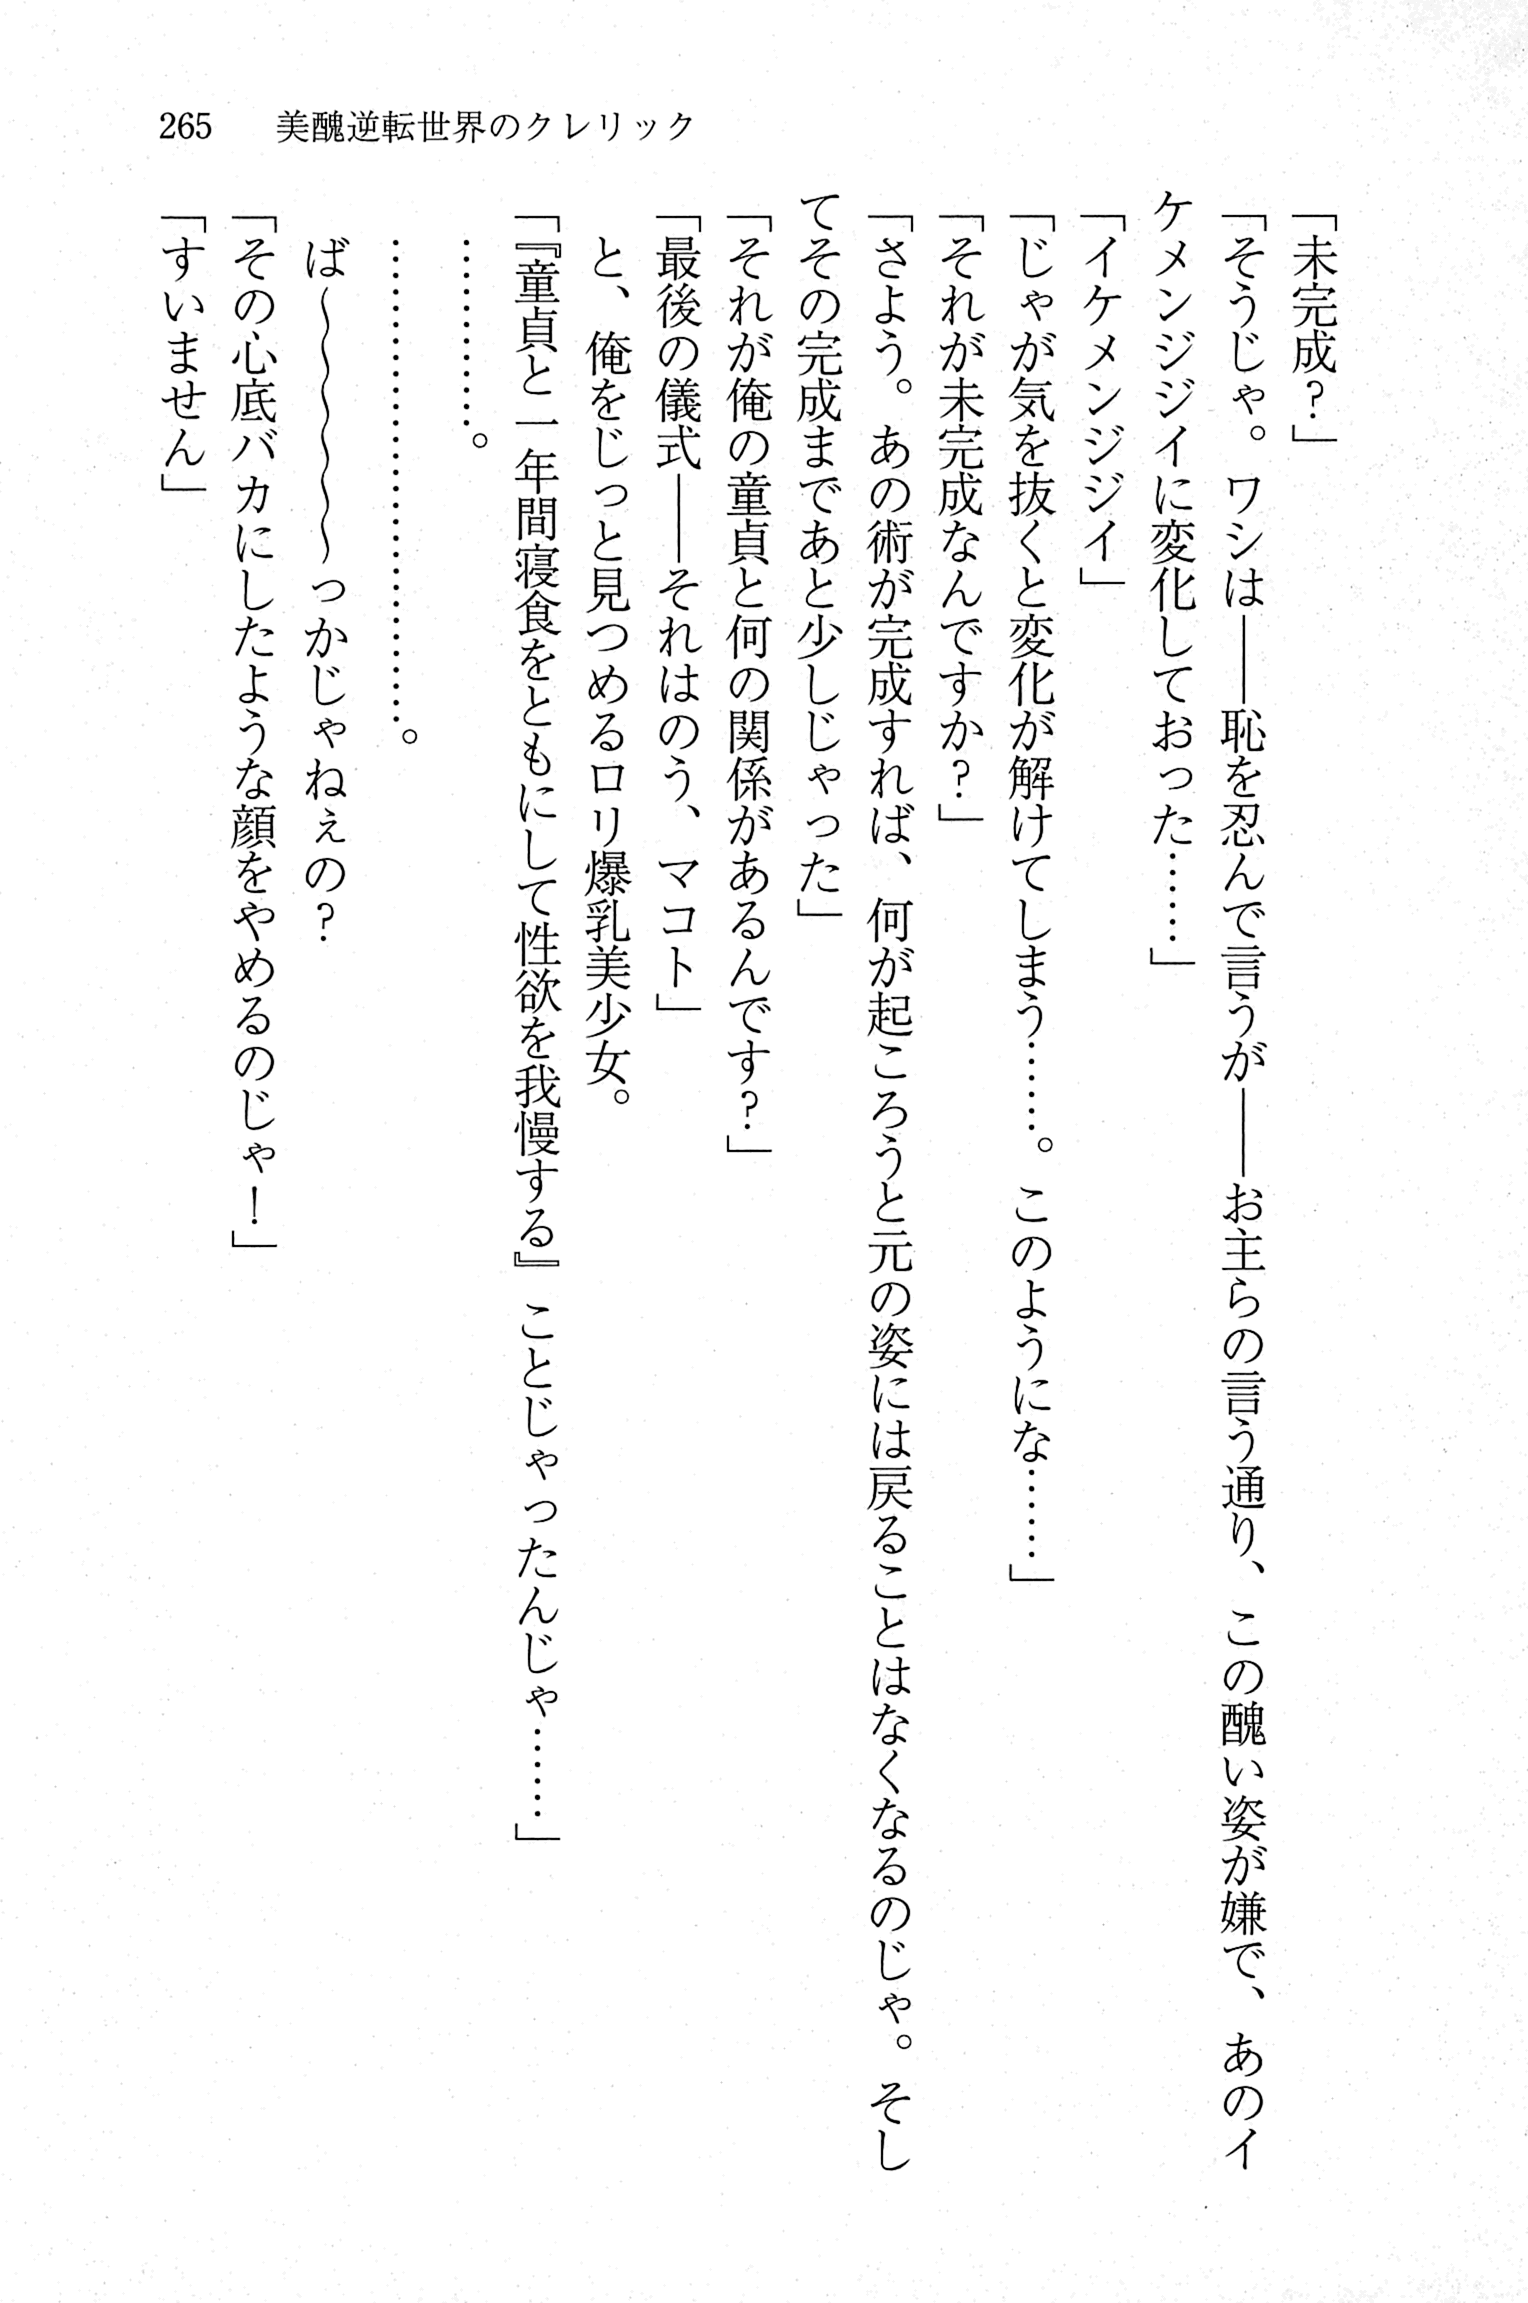 265 美醜逆転世界のクレリック
「未完成?」
「そうじゃ。ワシは――恥を忍んで言うが――お主らの言う通り、この醜い姿が嫌で、あのイ
ケメンジジイに変化しておった……」
「イケメンジジイ」
「じゃが気を抜くと変化が解けてしまう……。このようにな……」
「それが未完成なんですか?」
「さよう。あの術が完成すれば、何が起ころうと元の姿には戻ることはなくなるのじゃ。そし
てその完成まであと少しじゃった」
「それが俺の童貞と何の関係があるんです?」
「最後の儀式――それはのう、マコト」
と、俺をじっと見つめるロリ爆乳美少女。
「『童貞と一年間寝食をともにして性欲を我慢する』ことじゃったんじゃ……」
…………。
……………………………。
ば～～～～～～っかじゃねぇの?
「その心底バカにしたような顔をやめるのじゃ!」
「すいません」